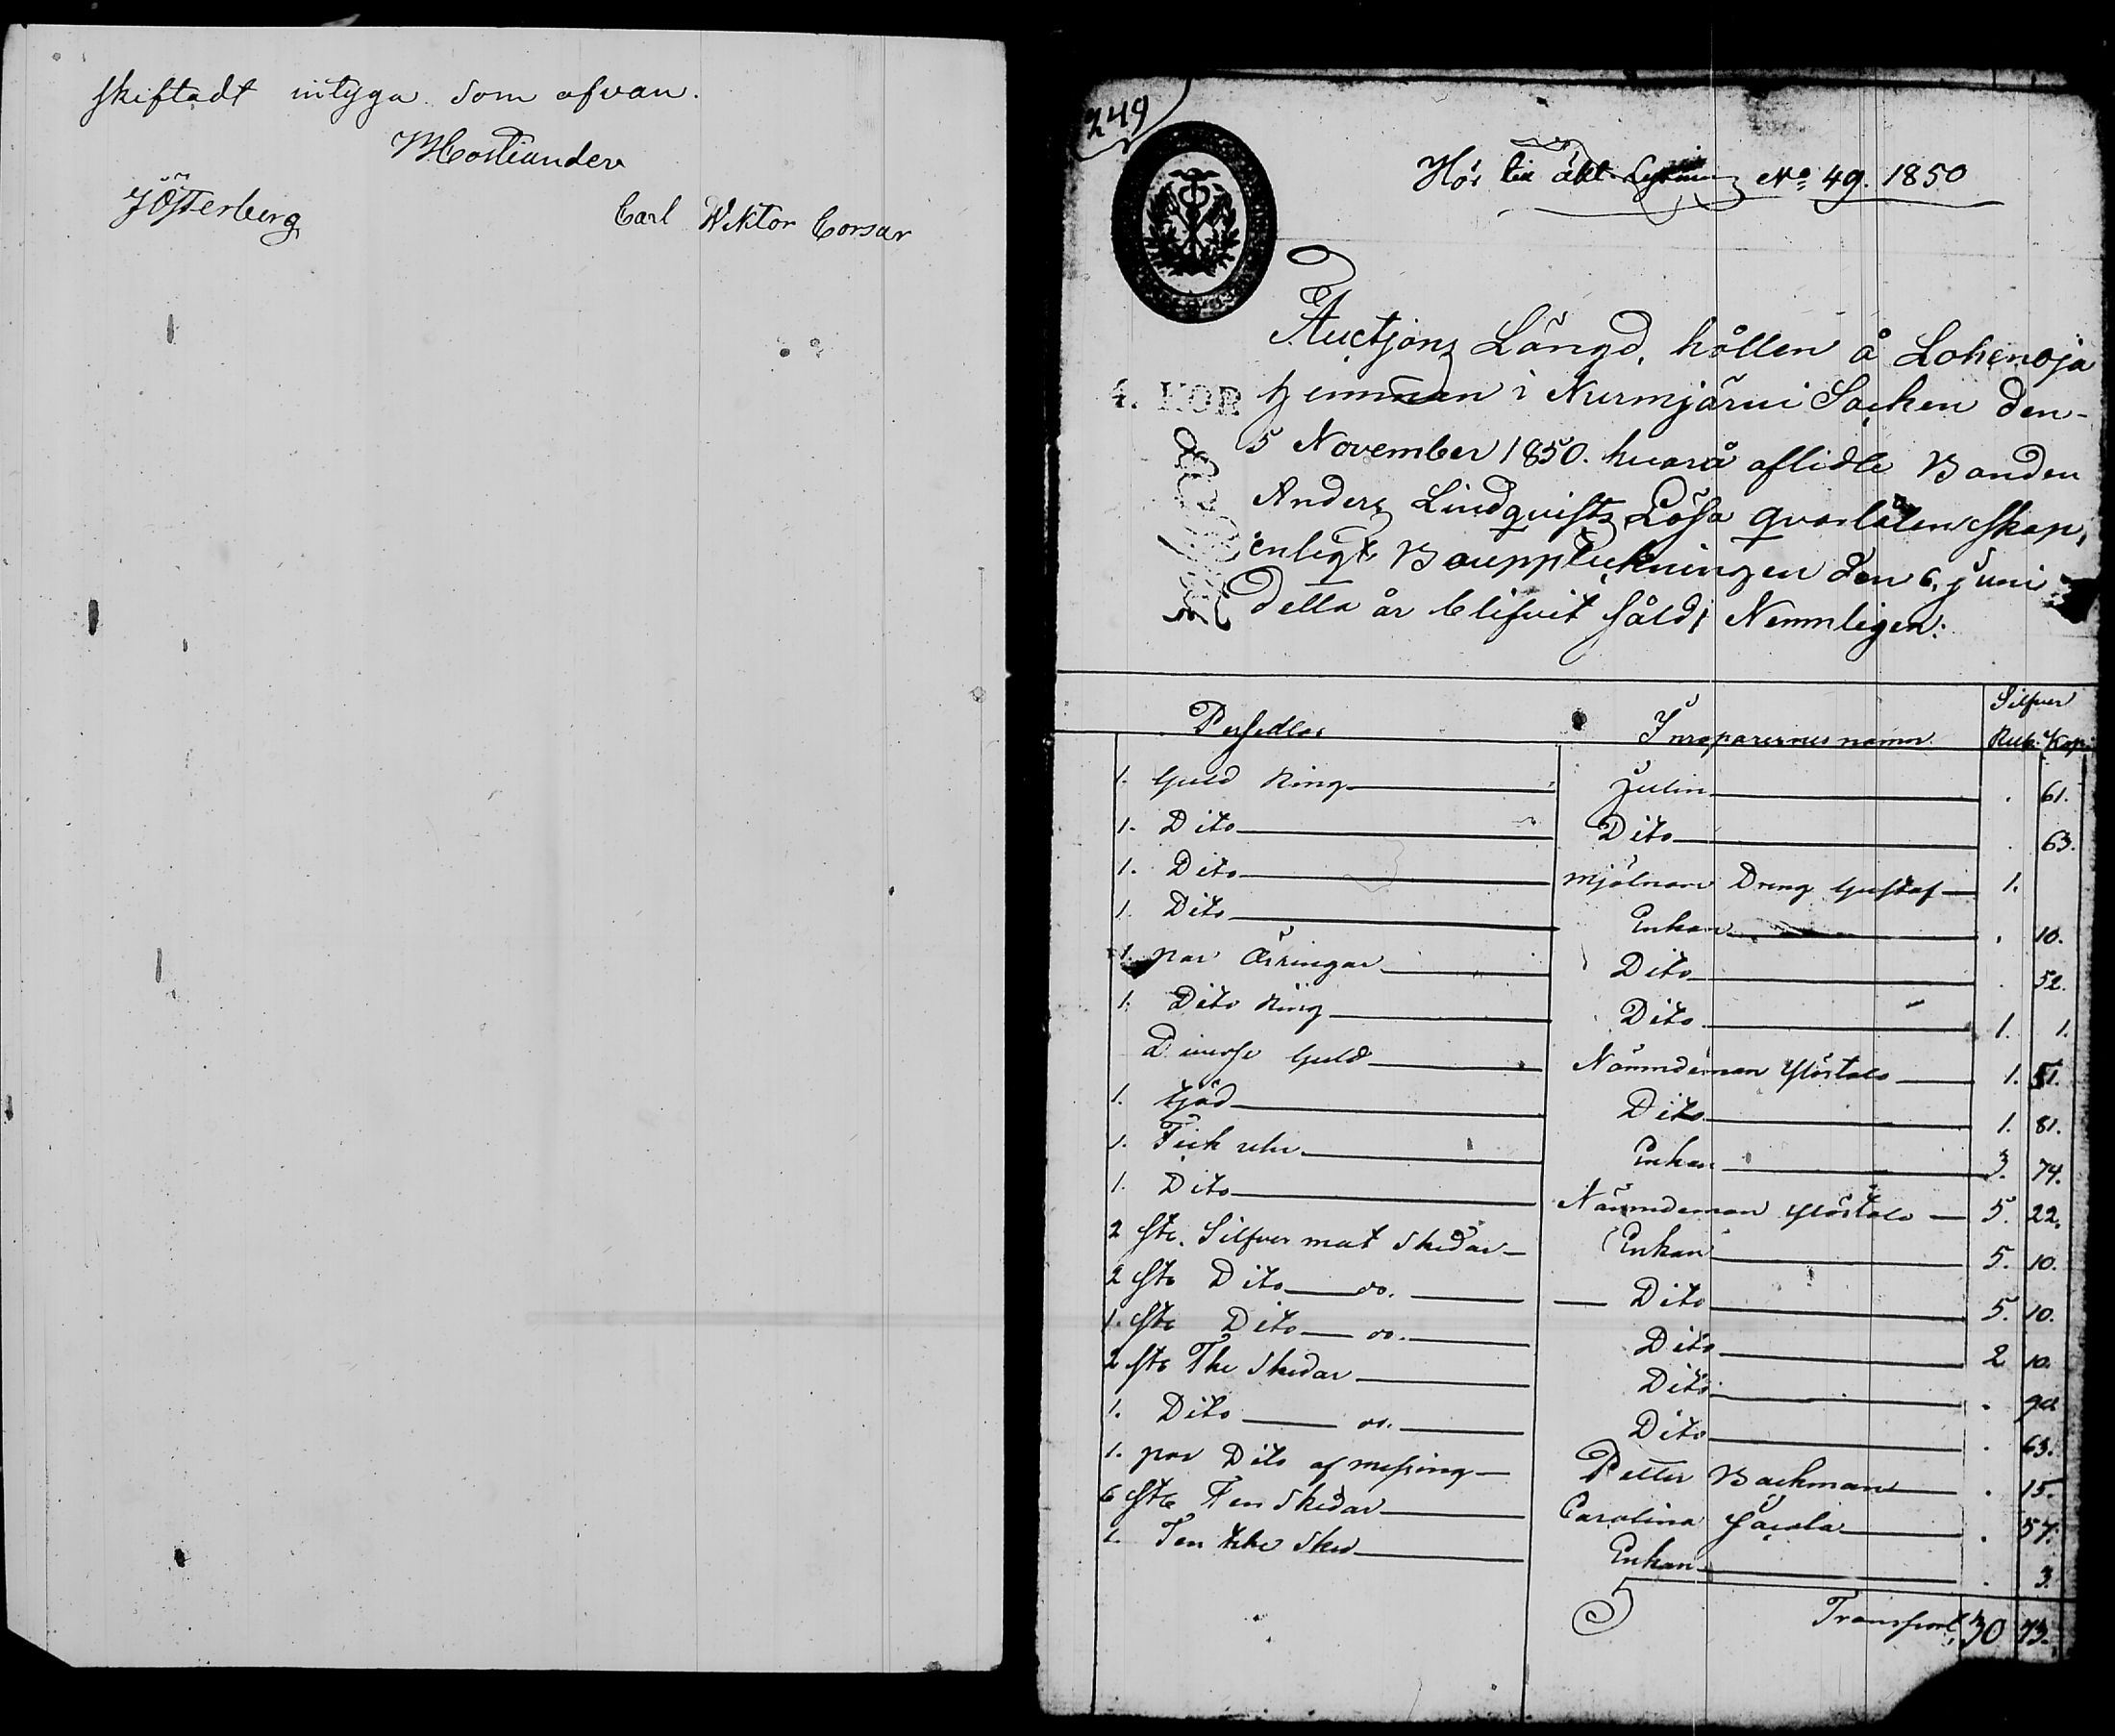 skiftadt intyga som ofvan.
M Costiander
J Österberg
Carl Wiktor Corsar
249
Hör till N<u>o</u> 49. 1850
4. KOP
Auctjons Längd, hållen å Lohenoja
hemman i Nurmjärvi Sacken den
5 November 1850. hvarå aflidle Bonden
Anders Lindqvists Lösa qvarlåtenskap,
enligt Bouppteckningen den 6, Juni
detta år blifvit såld; Nemmligen:
Silfver
Persedlar Inroparernes namn Rub. Kop.
1. Guld Ring Julin . 61.
1. Dito Dito . 63.
1. Dito mjölnare Dreng Gustaf 1.
1. Dito Enkan . 10.
1. par Örringar Dito . 52.
1. Dito Ring Dito 1. 1.
Diverse Guld Nämndeman 1. 51.
1. Dito 1. 81.
1. Fick uhr Enkan 3. 74.
1. Dito Nämndeman 5. 22.
2 st: Silfver mat Skedar Enkan 5. 10.
2 st: Dito do. Dito 5. 10.
1. st: Dito do. Dito 2 10.
2 st: The Skedar Dito .
1. Dito do. Dito . 63.
1. par Dito af messing Petter Backman . 15.
6 st: Ten Skedar Carolina . 57.
1. Ten the Sked Enkan . 3.
Transport, 30 73.